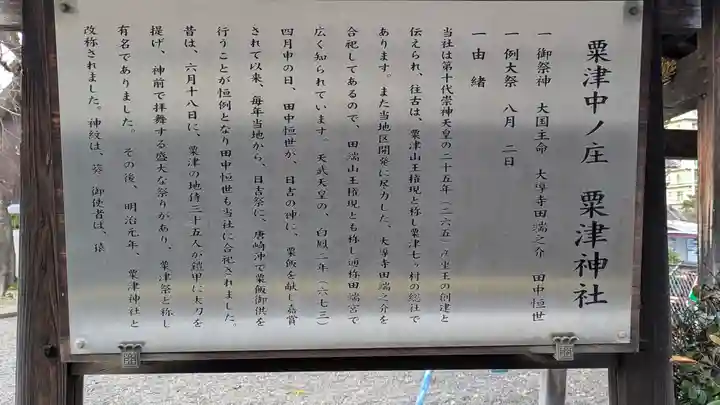 粟津中ノ庄 粟津神社
一 御祭神 大国主命 大導寺田端之介 田中恒世
一 例大祭 八月 二日
一 由緒
当社は第十代崇神天皇の二十五年(二六五)の創建と
伝えられ、往古は、粟津山王権現と称し粟津七ヶ村の総社で
あります。また当地区開発に尽力した、大導寺田端之介を
合祀してあるので、田端山王権現とも称し通称田端宮で
広く知られています。天武天皇の、白鳳二年(六七三)
四月申の日、田中恒世が、日吉の神に、粟飯を献し嘉賞
されて以来、毎年当地から、日吉祭に、唐崎沖で粟飯御供を
行うことが恒例となり田中恒世も当社に合祀されました。
昔は、六月十八日に、粟津の地侍二十五人が鎧甲に太刀を
提げ、神前で拝舞する盛大な祭りがあり、粟津祭と称し
有名でありました。その後、明治元年、粟津神社と
改称されました。神紋は、葵 御使者は、猿